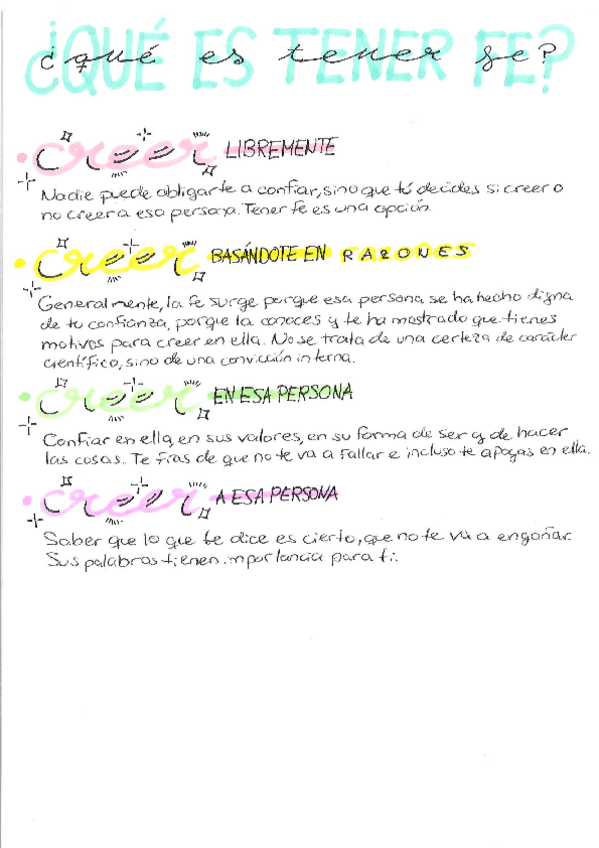 ¿QUÉ ES TENER FE?
¿qué es tener fe?
• creer LIBREMENTE
Nadie puede obligarte a confiar, sino que tú decides si creer o
no creer a esa persona. Tener fe es una opción.
• creer BASÁNDOTE EN RAZONES
Generalmente, la fe surge porque esa persona se ha hecho digna
de tu confianza, porque la conoces y te ha mostrado que tienes
motivos para creer en ella. No se trata de una certeza de carácter
científico, sino de una convicción interna.
• creer EN ESA PERSONA
Confiar en ella, en sus valores, en su forma de ser y de hacer
las cosas. Te fías de que no te va a fallar e incluso te apoyas en ella.
• creer A ESA PERSONA
Saber que lo que te dice es cierto, que no te va a engañar.
Sus palabras tienen importancia para ti.